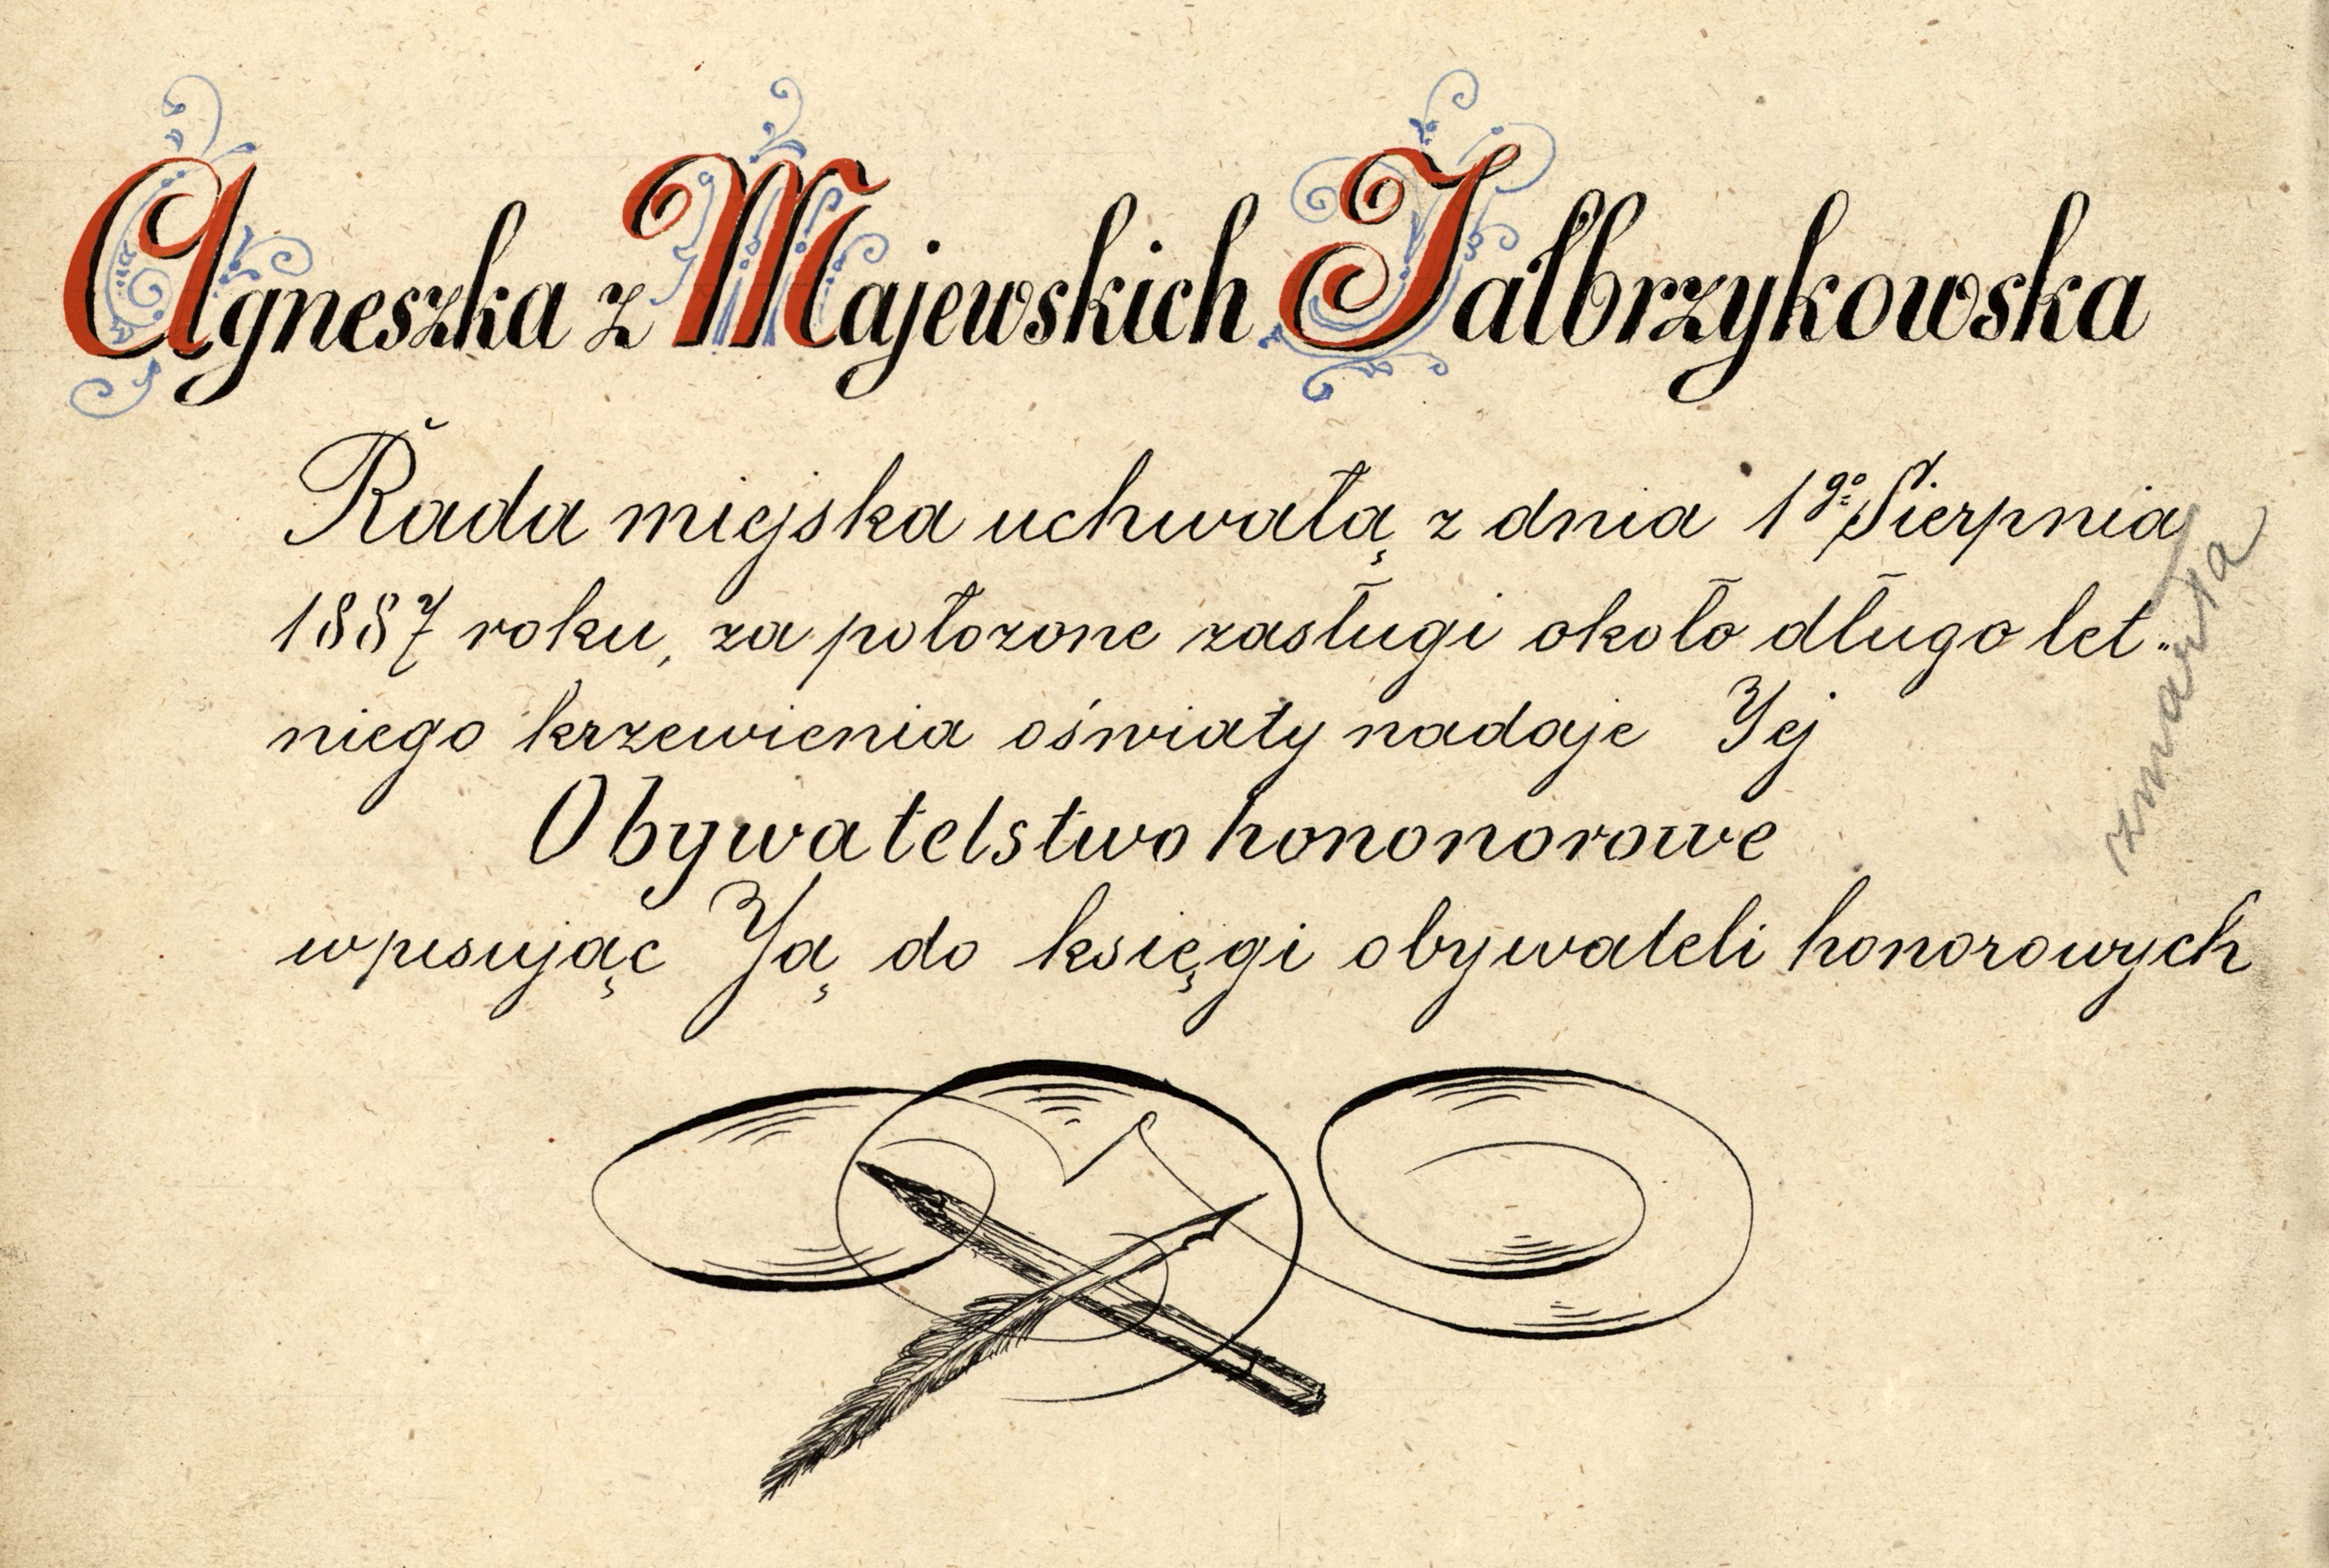 Agneszka z Majewskich Jałbrzykowska
Rada miejska uchwałą z dnia 1go Sierpnia
1887 roku, za połozone zasługi około długo let-
niego krzewienia oświaty nadaje Jej
Obywatelstwo hononorowe
wpisując Ją do księgi obywateli honorowych
zmarła